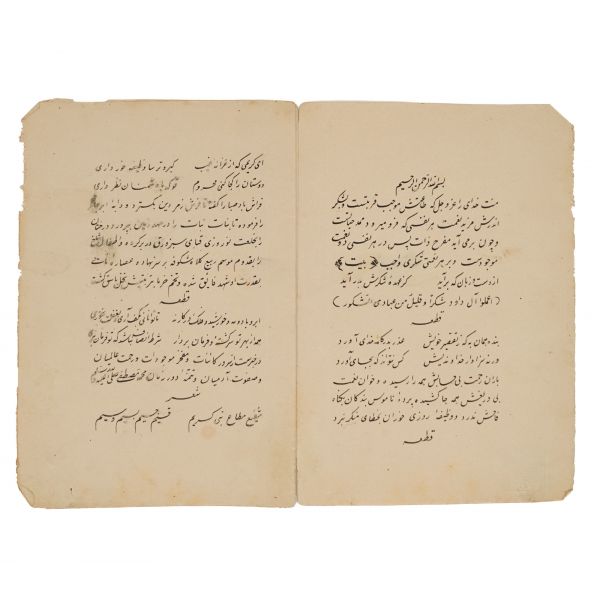 بسم الله الرحمن الرحیم
منت خدای را عز و جل که طاعتش موجب قربتست و بشکر
اندرش مزید نعمت هر نفسی که فرو میرود ممد حیاتست
و چون بر می آید مفرح ذات پس در هر نفسی دو نعمت
موجودست و بر هر نعمتی شکری واجب بیت
از دست و زبان که برآید کز عهدهٔ شکرش بدر آید
(اعملوا آل داود شکراً و قلیل من عبادی الشکور)
قطعه
بنده همان به که ز تقصیر خویش عذر بدرگاه خدای آورد
ورنه سزاوار خداوندیش کس نتواند که بجای آورد
باران رحمت بی حسابش همه را رسیده و خوان نعمت
بی دریغش همه جا کشیده پردهٔ ناموس بندگان بگناه
فاحش ندرد و وظیفهٔ روزی خوران بخطای منکر نبرد
قطعه
ای کریمی که از خزانه غیب گبر و ترسا وظیفه خور داری
دوستان را کجا کنی محروم تو که با دشمنان نظر داری
فراش باد صبا را گفته تا فرش زمردین بگسترد و دایهٔ ابر
را فرموده تا بنات نبات را در مهد زمین بپرورد درختان
را بخلعت نوروزی قبای سبز ورق در بر کرده و اطفال شاخ
را بقدوم موسم ربیع کلاه شکوفه بر سر نهاده عصاره
بقدرت او شهد فایق شده و تخم خرما بتربیتش نخل باسق گشته
قطعه
ابر و باد و مه و خورشید و فلک در کارند تا تو نانی بکف آری و بغفلت نخوری
همه از بهر تو سرگشته و فرمان بردار شرط انصاف نباشد که تو فرمان نبری
در خبرست از سرور کائنات و مفخر موجودات و رحمت عالمیان
و صفوت آدمیان و تتمهٔ دور زمان محمد مصطفی صلی الله علیه
شعر
شفیع مطاع نبی کریم قسیم جسیم بسیم وسیم